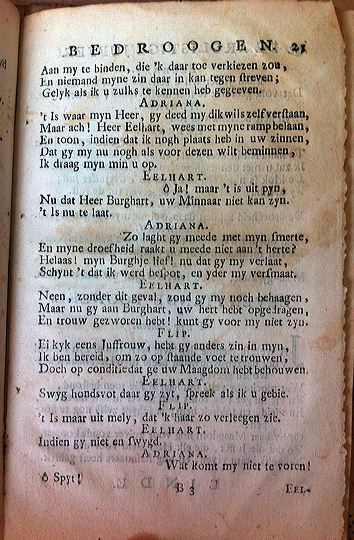 BEDROOGEN. 21
Aan my te binden, die 'k daar toe verkiezen zou,
En niemand myne zin daar in kan tegen streven;
Gelyk als ik u zulks te kennen heb gegeeven.
ADRIANA.
't Is waar myn Heer, gy deed my dikwils zelf verstaan,
Maar ach! Heer Eelhart, wees met myne ramp belaan,
En toon, indien dat ik nogh plaats heb in uw zinnen,
Dat gy my nu nogh als voor dezen wilt beminnen,
Ik draag myn min u op.
EELHART.
ô Ja! maar 't is uit pyn,
Nu dat Heer Burghart, uw Minnaar niet kan zyn.
't Is nu te laat.
ADRIANA.
Zo laght gy meede met myn smerte,
En myne droefheid raakt u meede niet aan 't herte?
Helaas! myn Burghje lief! nu dat gy my verlaat,
Schynt 't dat ik werd bespot, en yder my versmaat.
EELHART.
Neen, zonder dit geval, zoud gy my noch behaagen,
Maar nu gy aan Burghart, uw hert hebt opgedragen,
En trouw gezworen hebt! kunt gy voor my niet zyn.
FLIP.
Ei kyk eens Juffrouw, hebt gy anders zin in myn,
Ik ben bereid, om zo op staande voet te trouwen,
Doch op conditie dat ge uw Maagdom hebt behouwen.
EELHART.
Swyg hondsvot daar gy zyt, spreek als ik u gebie.
FLIP.
't Is maar uit mely, dat 'k haar zo verleegen zie.
EELHART.
Indien gy niet en swygd.
ADRIANA.
Wat komt my niet te voren!
ô Spyt!
B 3 EEL-